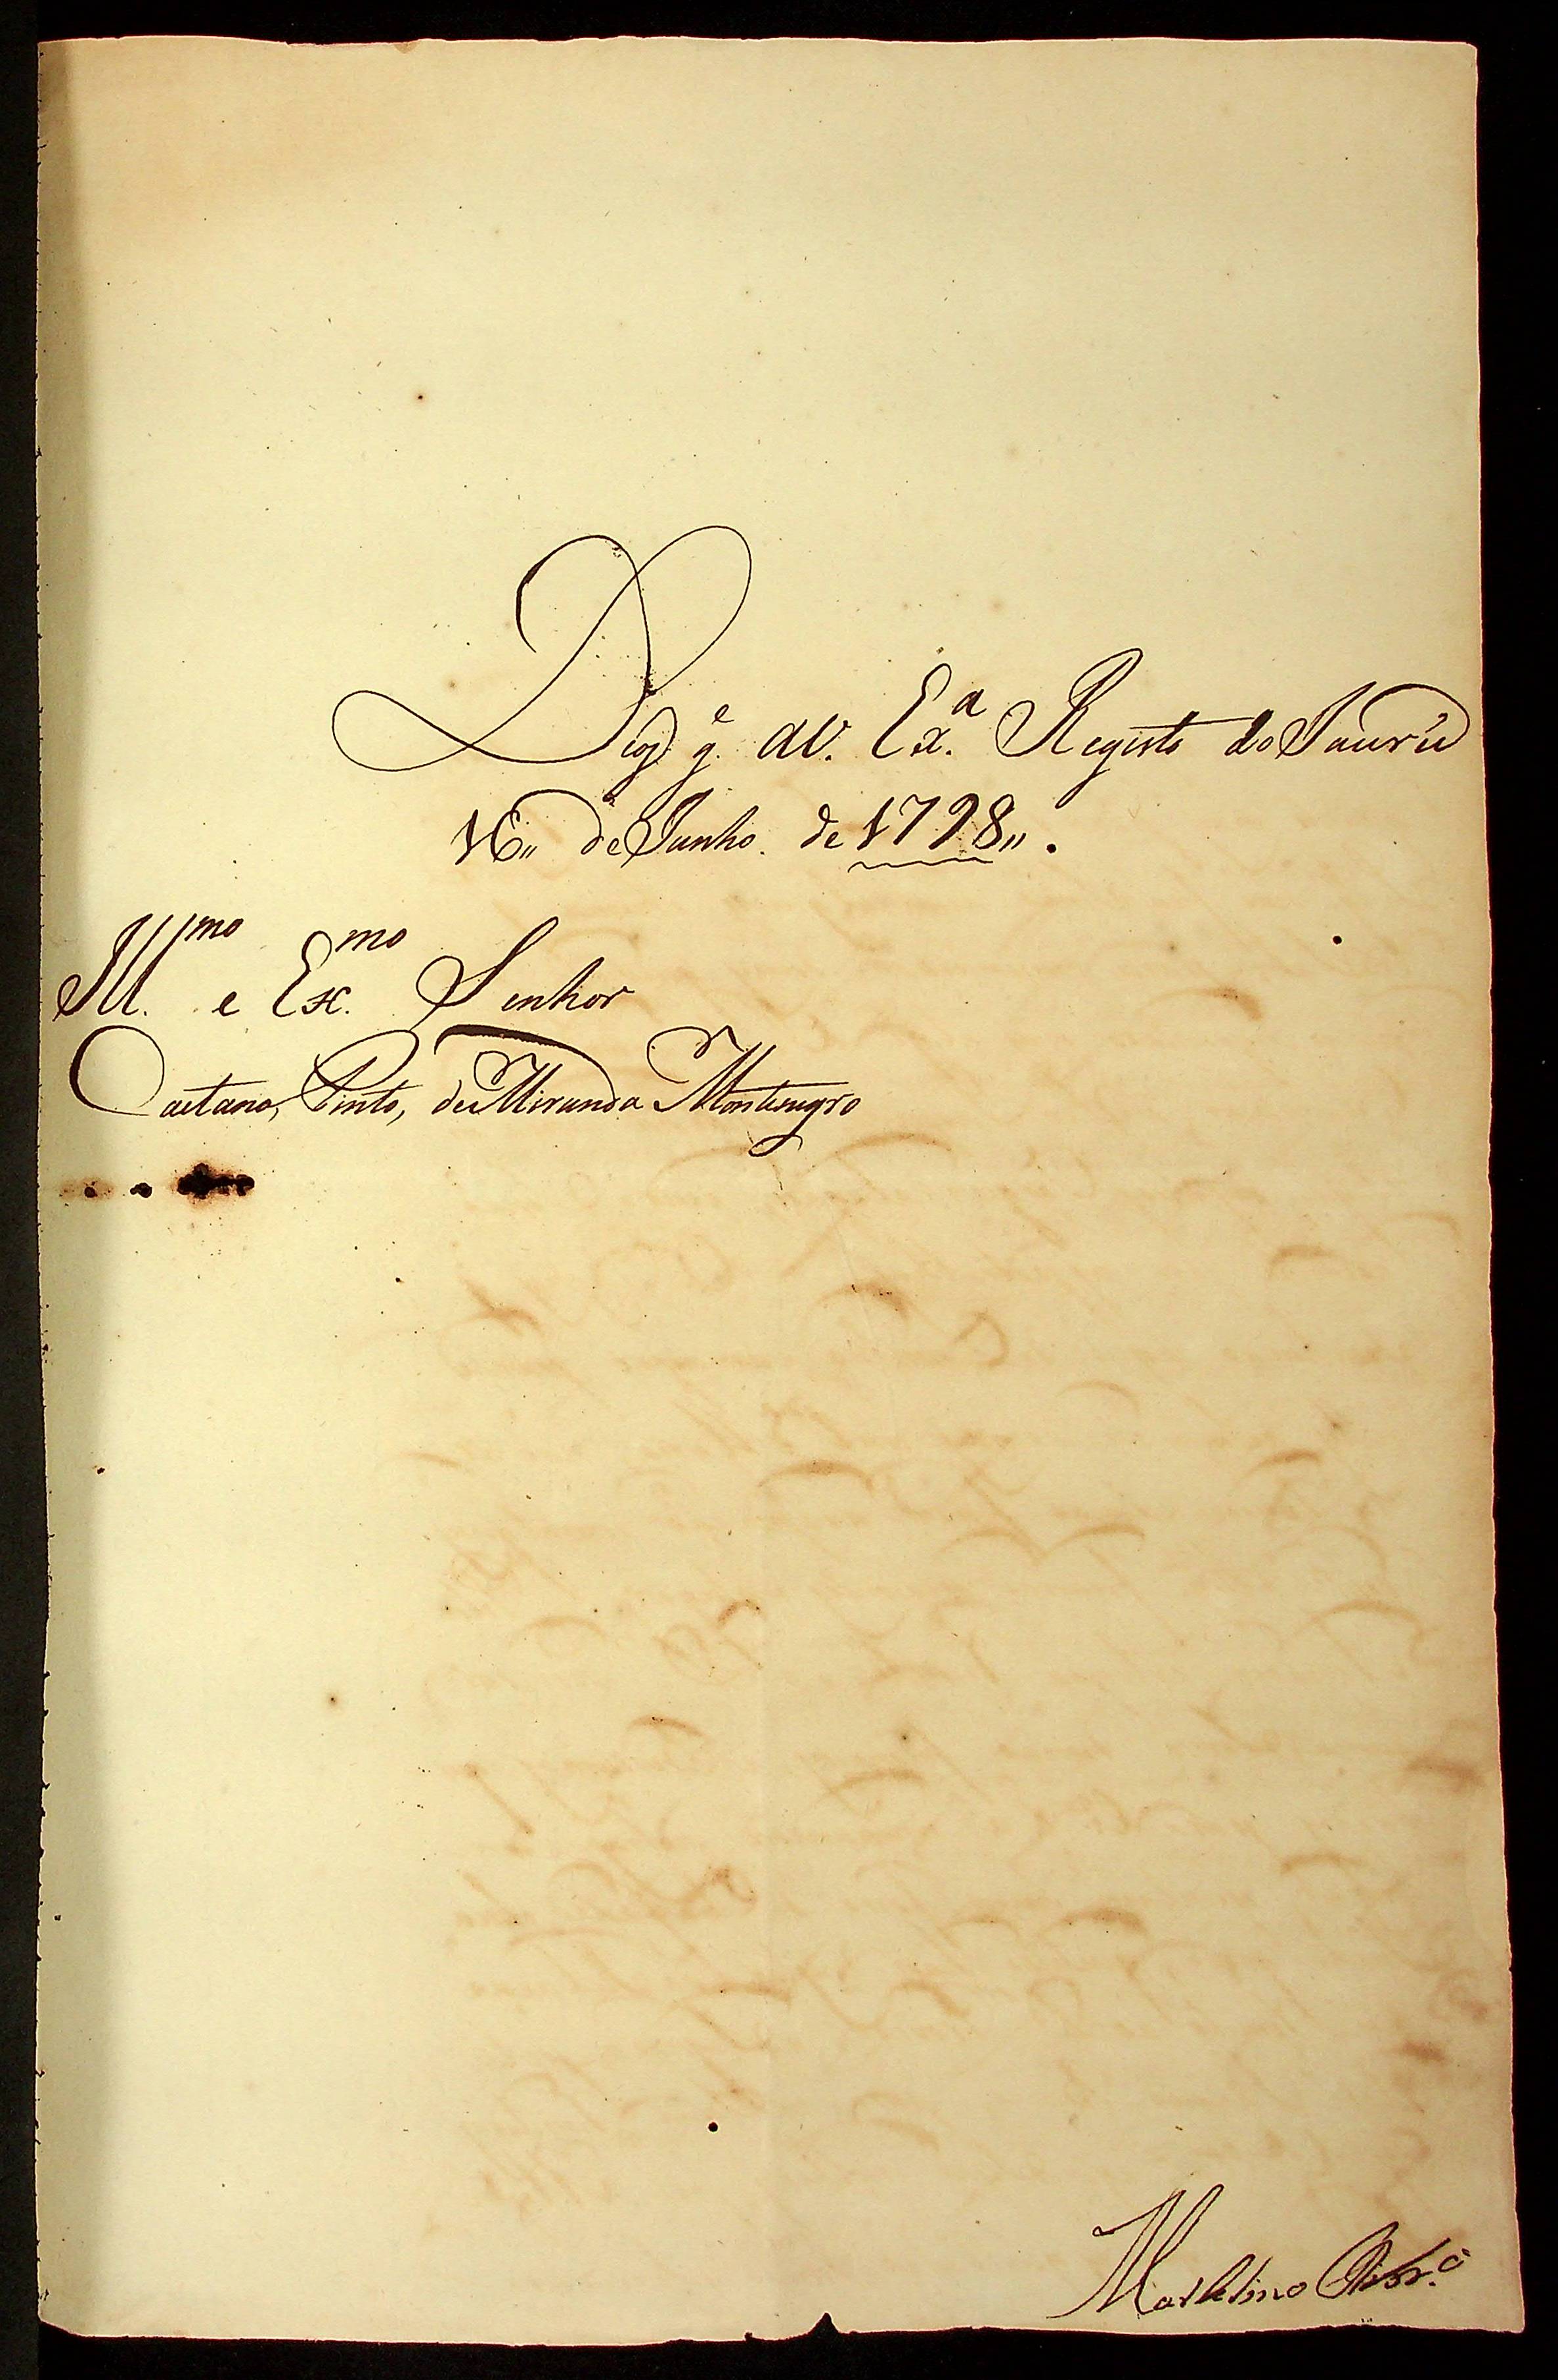 Deos g.e a V. Ex.a Registo do Jaurú
16,, de Junho. de 1798,,.
Ill.mo e Ex.mo Senhor
Caetano, Pinto, de Miranda Montenegro